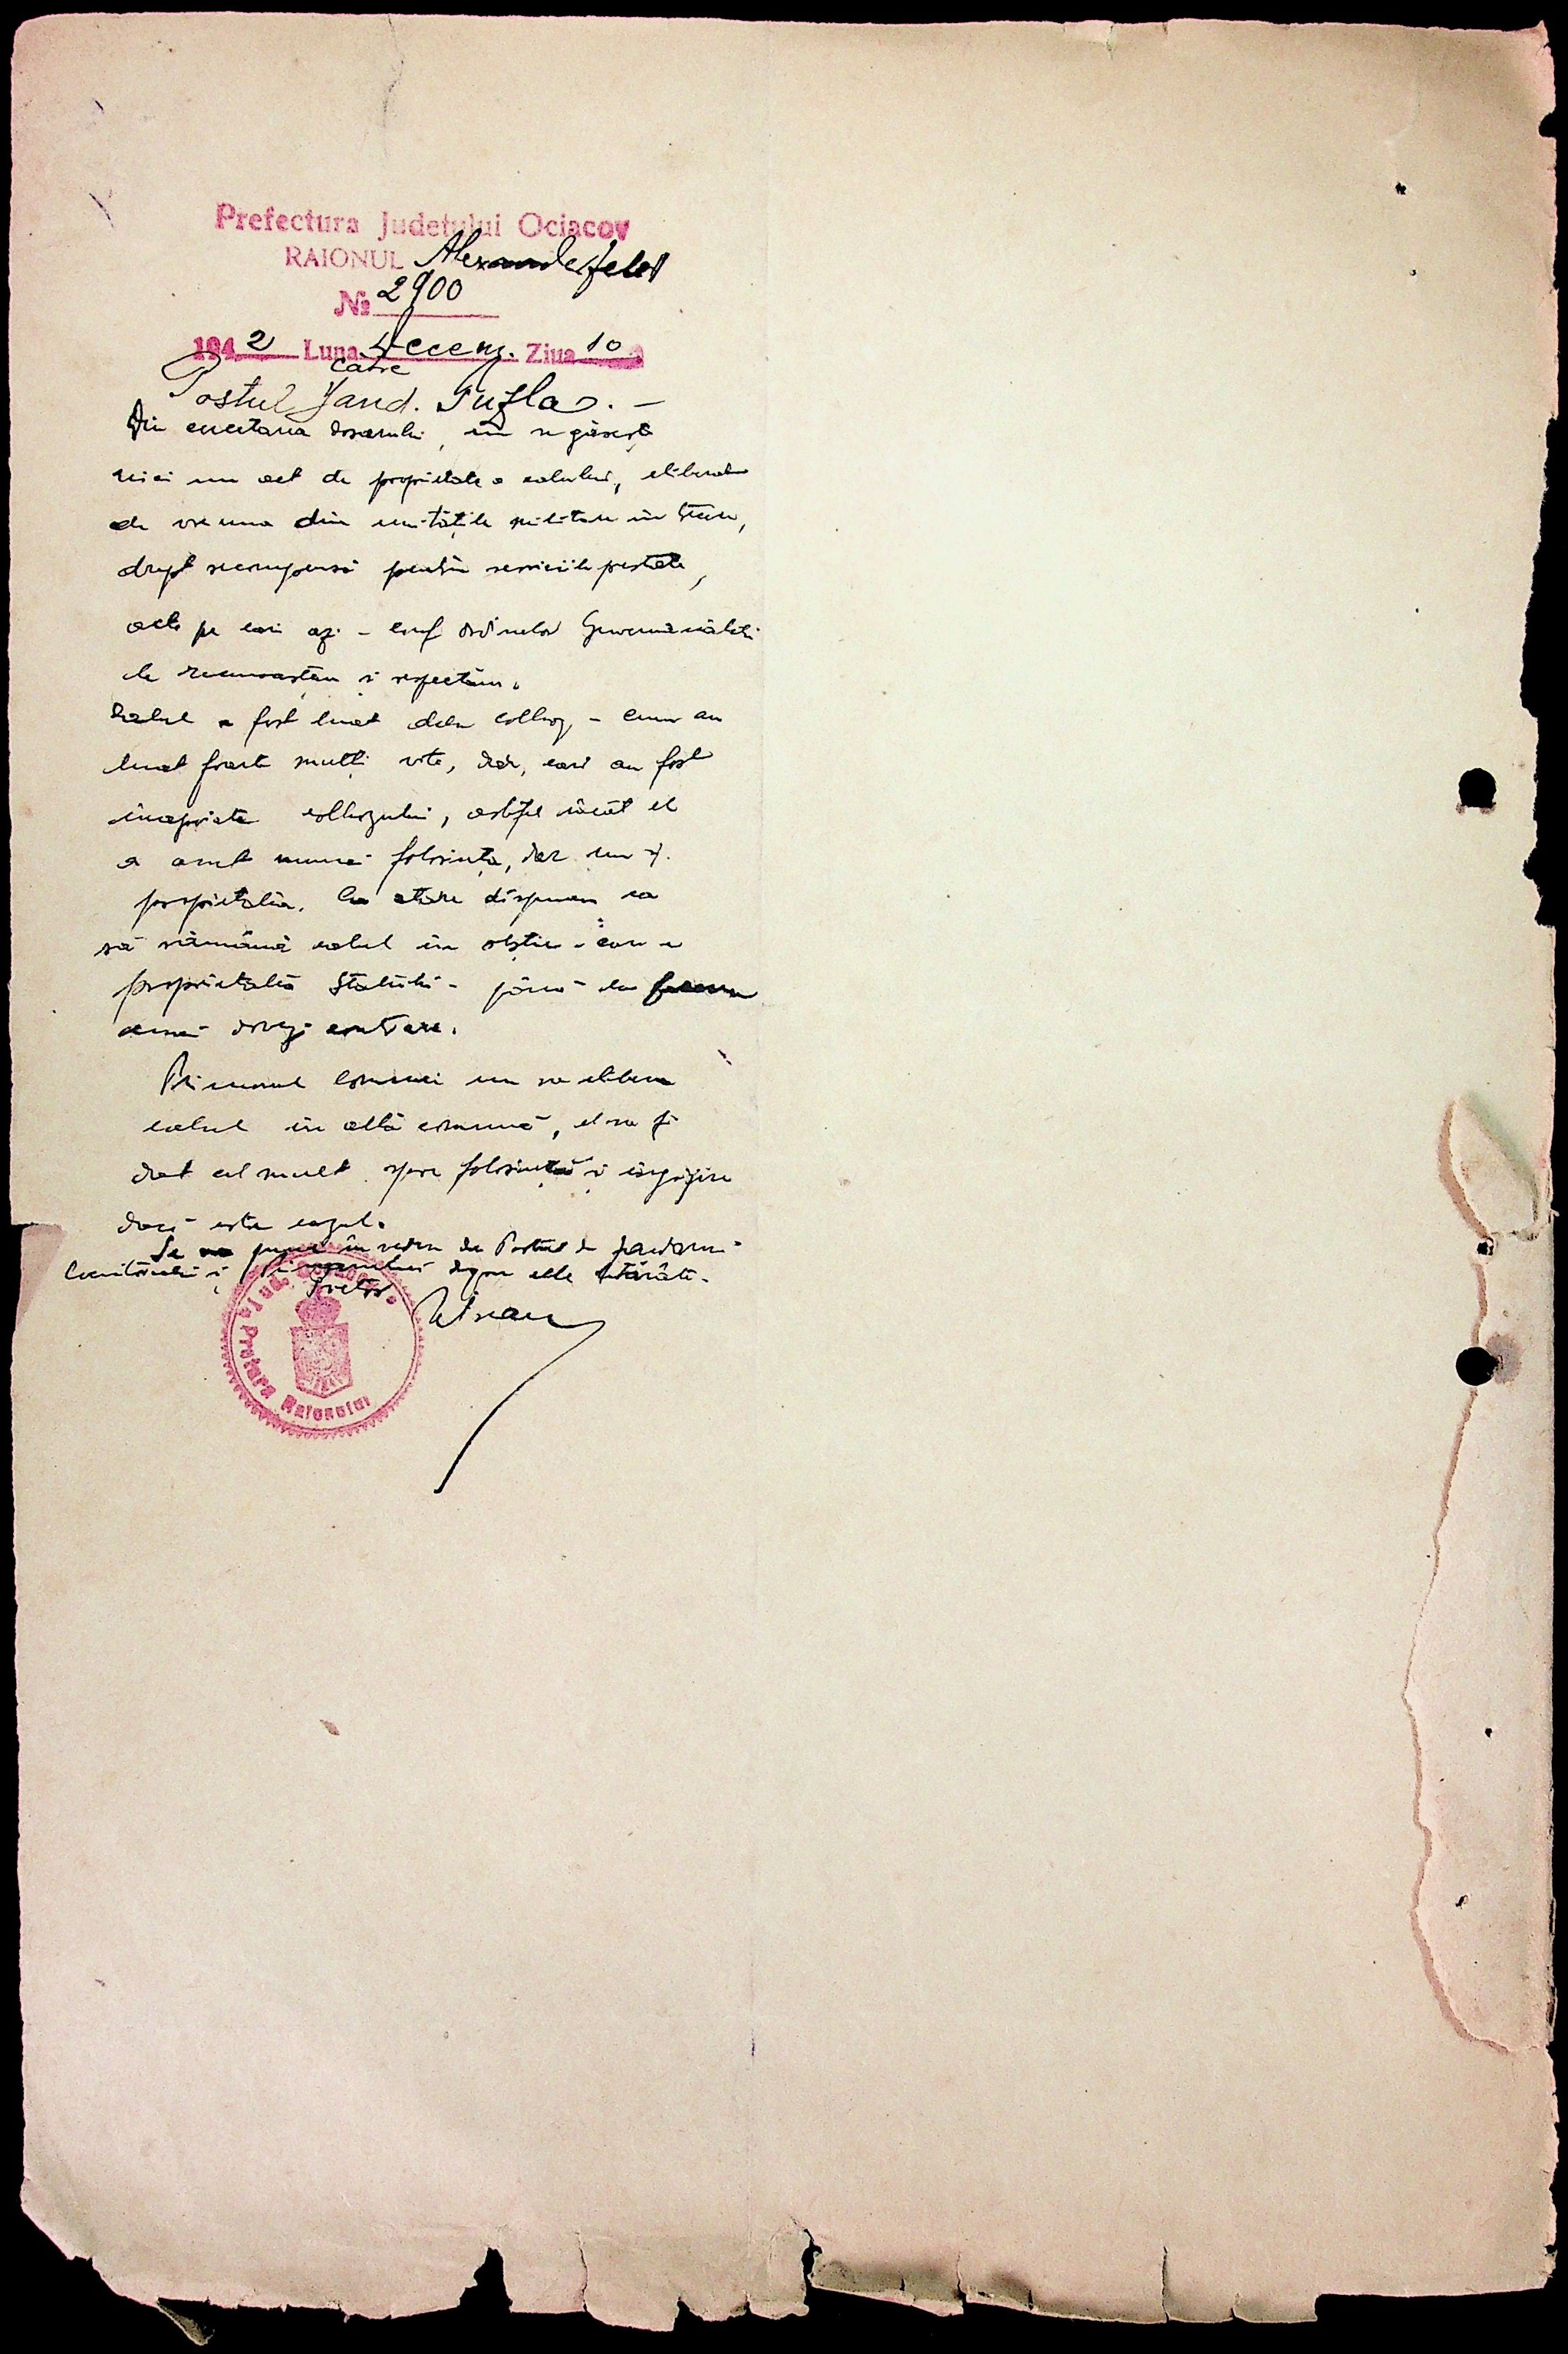 Prefectura Judetului Ociacov
RAIONUL Alexanderfeld
№ 2900
1942 Luna Decem. Ziua 10
Catre
Postul Jand. Tuzla. —
Din cercetarea dosarului, nu se găsește
nici un act de proprietate a calului, eliberat
de vre una din unitățile militare în trecere,
drept recompensă pentru serviciile prestate,
acte pe cari azi - conf ordinelor Guvernământului
le recunoaștem și respectăm.
Calul a fost luat dela colhoz, - cum au
luat foarte mulți vite, dar, cari au fost
colhozului, astfel încât el
a avut numai folosința, dar nu și
proprietatea. Ca atare dispunem ca
să rămână calul în obștie - care e
proprietatea Statului - până la
dovezi contrare.
Primarul comunei nu va elibera
calul în altă comună, el va fi
dat cel mult spre folosință și îngrijire
dacă este cazul.
Se va pune în vedere de Postul de jandarmi
locuitorului și Primarului despre cele hotărâte.
Pretor
Jud. Oceacov
Pretura Raionului